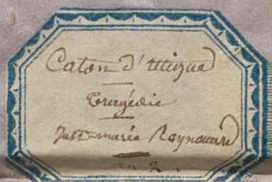 Caton d'utique
Tragédie
Just-marie Raynouard